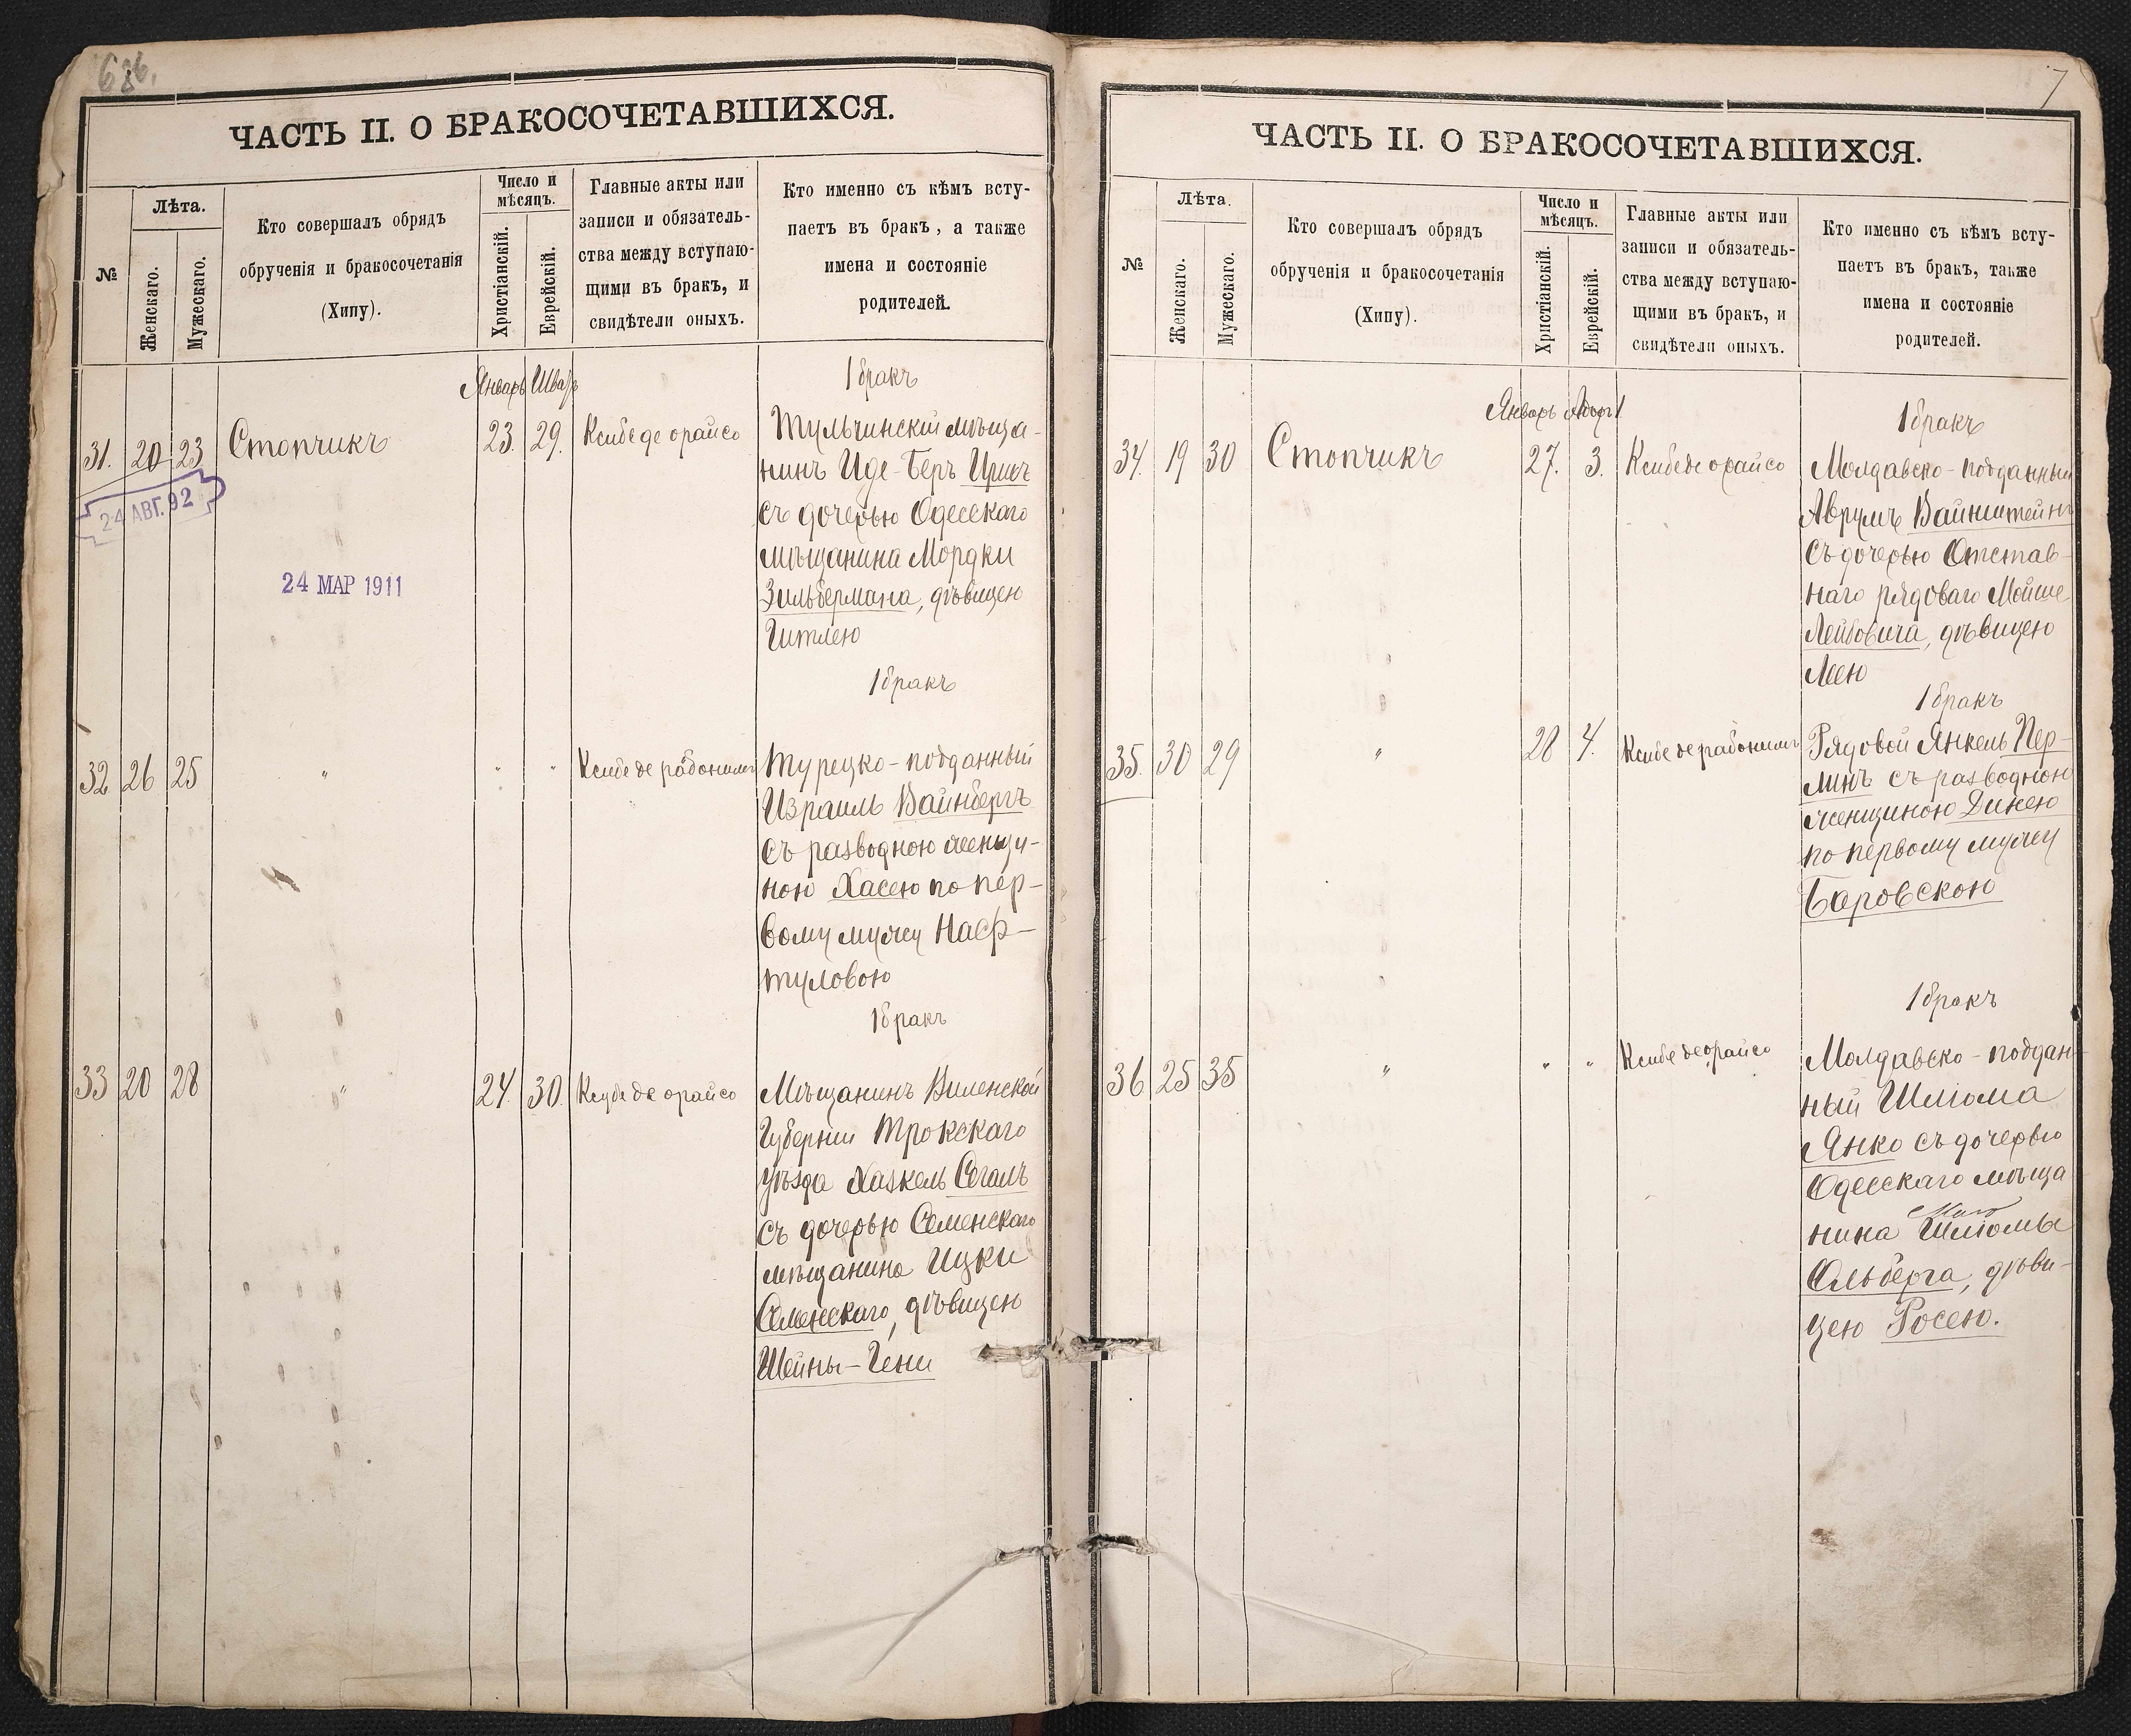 686.
ЧАСТЬ II. О БРАКОСОЧЕТАВШИХСЯ.
№
Лѣта.
Женскаго.
Мужескаго.
Кто совершалъ обрядъ
обрученія и бракосочетанія
(Хипу).
Число и
мѣсяцъ.
Христіанскій.
Еврейскій.
Главные акты или
записи и обязатель-
ства между вступаю-
щими въ бракъ, и
свидѣтели оныхъ.
Кто именно съ кѣмъ всту-
паетъ въ бракъ, а также
имена и состояніе
родителей.
Январь Шватъ
1 бракъ
31. 20 23 Стопчикъ 23. 29. Ксибе де орайсо Тульчинскій мѣща-
нинъ Иде-Беръ Ирикъ
съ дочерью Одесскаго
мѣщанина Мордки
Зильбермана, дѣвицею
Гитлею
24 АВГ. 92
24 МАР 1911
1 бракъ
32 26 25 " " " Ксибе де рабонимъ Турецко-подданный
Израиль Вайнбергъ
съ разводною женщи-
ною Хасею по пер-
вому мужу Наф-
туловою
1 бракъ
33 20 28 " 24. 30. Ксубе де орайсо Мѣщанинъ Виленской
Губерніи Трокскаго
уѣзда Хаскель Сегалъ
съ дочерью Семенскаго
мѣщанина Ицки
Семенскаго, дѣвицею
Шейны-Гени
7
ЧАСТЬ II. О БРАКОСОЧЕТАВШИХСЯ.
№
Лѣта.
Женскаго.
Мужескаго.
Кто совершалъ обрядъ
обрученія и бракосочетанія
(Хипу).
Число и
мѣсяцъ.
Христіанскій.
Еврейскій.
Главные акты или
записи и обязатель-
ства между вступаю-
щими въ бракъ, и
свидѣтели оныхъ.
Кто именно съ кѣмъ всту-
паетъ въ бракъ, также
имена и состояніе
родителей.
Январь
1 бракъ
34. 19 30 Стопчикъ 27. 3. Ксибе де орайсо Молдавско-подданный
Аврумъ Вайнштейнъ
съ дочерью Отстав-
наго рядоваго Мойше
Лейбовича, дѣвицею
Леею
1 бракъ
35. 30 29 " 28 4. Ксибе де рабонимъ Рядовой Янкель Пер-
линъ съ разводною
женщиною Динею
по первому мужу
Баровскою
1 бракъ
36 25 35 " " " Ксибе де орайсо Молдавско-поддан
ный Шлiома
Янко съ дочерью
Одесскаго мѣща
нина Шлiомы
Ольберга, дѣви-
цею Росею.